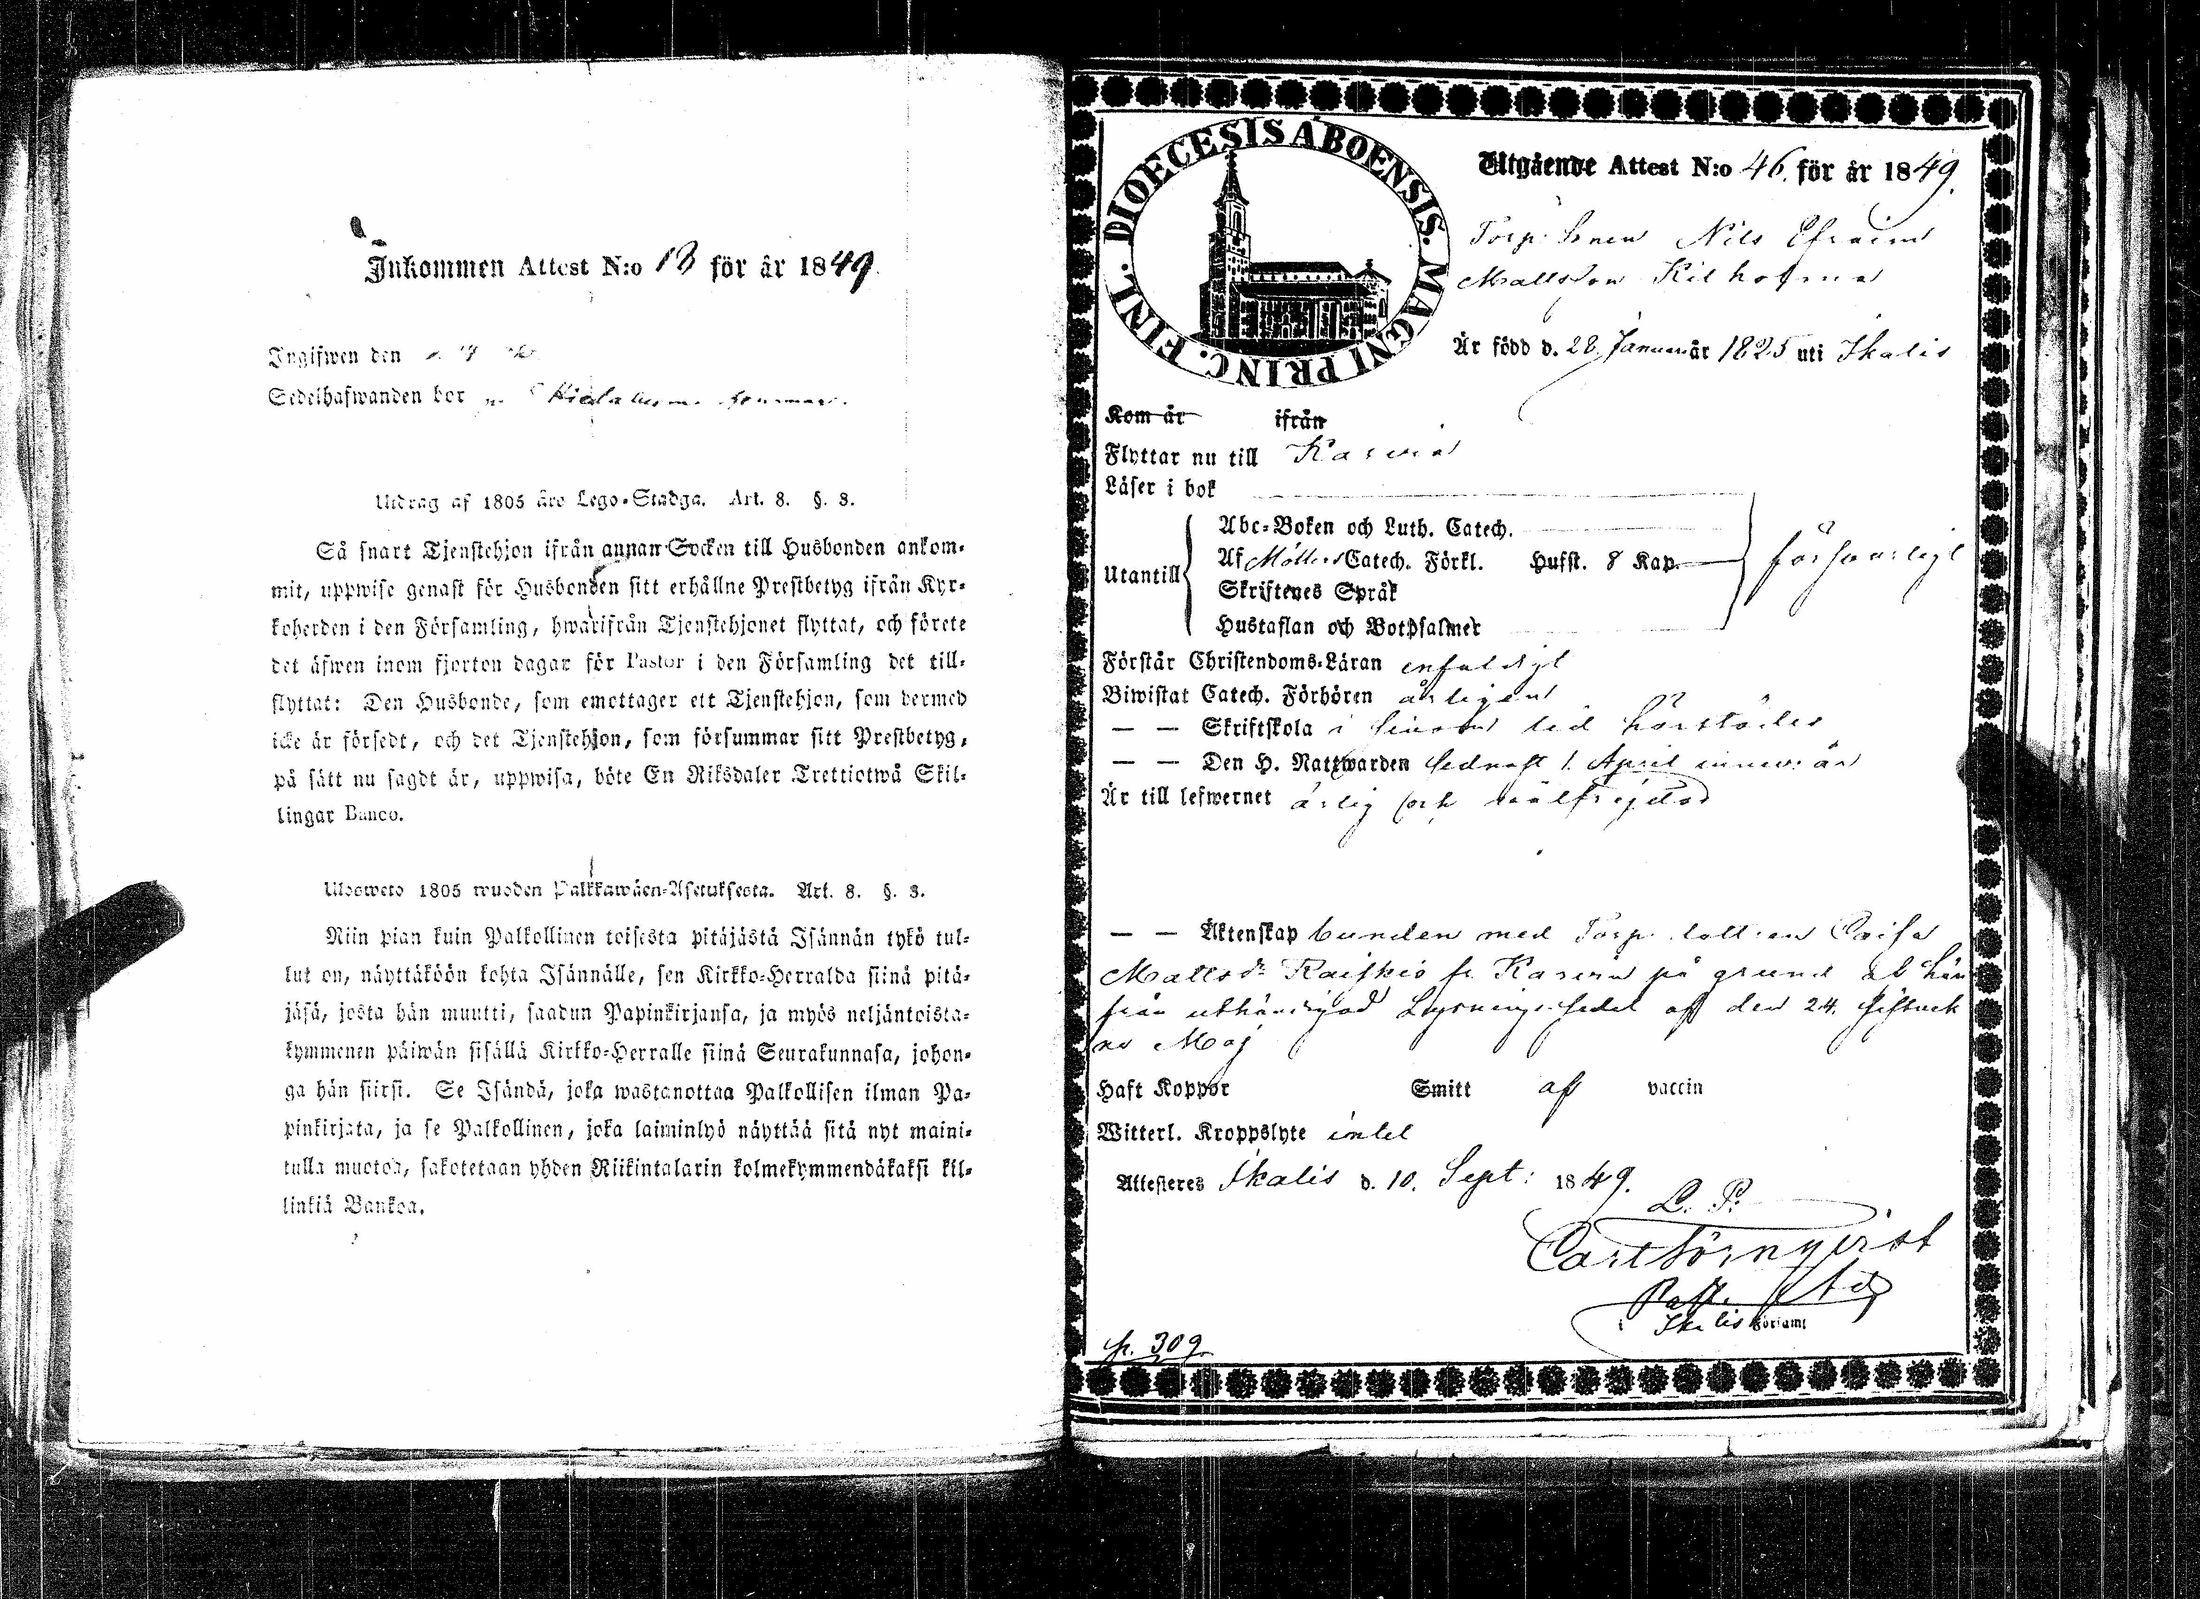 Inkommen Attest N:o 13 för år 1849.
Ingifwen den
Sedelhafwanden bor
Utdrag af 1805 års Lego-Stadga. Art. 8. §. 3.
Så snart Tjenstehjon ifrån annan Socken till Husbonden ankom-
mit, uppwise genast för Husbonden sitt erhållne Prestbetyg ifrån Kyr-
koherden i den Församling, hwarifrån Tjenstehjonet flyttat, och förete
det äfwen inom fjorton dagar för Pastor i den Församling det till-
flyttat: Den Husbonde, som emottager ett Tjenstehjon, som dermed
icke är försedt, och det Tjenstehjon, som försummar sitt Prestbetyg,
på sätt nu sagdt är, uppwisa, böte En Riksdaler Trettiotwå Skil-
lingar Banco.
Ulosweto 1805 wuoden Palkkawäen-Asetuksesta. Art. 8. §. 3.
Niin pian kuin Palkollinen toisesta pitäjästä Isännän tykö tul-
lut on, näyttäköön kohta Isännälle, sen Kirkko-Herralda siinä pitä-
jäsä, josta hän muutti, saadun Papinkirjansa, ja myös neljäntoista-
kymmenen päiwän sisällä Kirkko-Herralle siinä Seurakunnasa, johon-
ga hän siirsi. Se Isändä, joka wastanottaa Palkollisen ilman Pa-
pinkirjata, ja se Palkollinen, joka laiminlyö näyttää sitä nyt maini-
tulla muotoa, sakotetaan yhden Riikintalarin kolmekymmendäkaksi kil-
linkiä Bankoa.
DIOECESIS ABOENSIS. MAGNI PRINC. FINL.
Utgående Attest N:o 46. för år 1849.
Torp. Sonen Nils Efraim
Mattsson Kilholma
Är född d. 28 Januari år 1825 uti Ikalis
Kom år ifrån
Flyttar nu till Karvia
Läser i bok
Abc-Boken och Luth. Catech.
Utantill Af Möllers Catech. Förkl. Hufst. 8 Kap. försvarligt
Skriftenes Språk
Hustaflan och Botpsalmer
Förstår Christendoms-Läran enfaldigt
Biwistat Catech. Förhören årligen
— — Skriftskola i sinom tid härstädes
— — Den H. Nattwarden sednast 1. April innev: år
Är till lefwernet ärlig och välfrejdad
— — Äktenskap bunden med Torp. dottren Caisa
Mattsdr Raiskio fr. Karvia på grund af här
ifrån uthändigad Lysnings sedel af den 24. sistvek
ne Maj
Haft Koppor Smitt af vaccin
Witterl. Kroppslyte intet
Attesteras Ikalis d. 10. Sept: 1849.
L. P.
Carl Törnqvist
Past. Adj
i Ikalis Församl
p. 309.